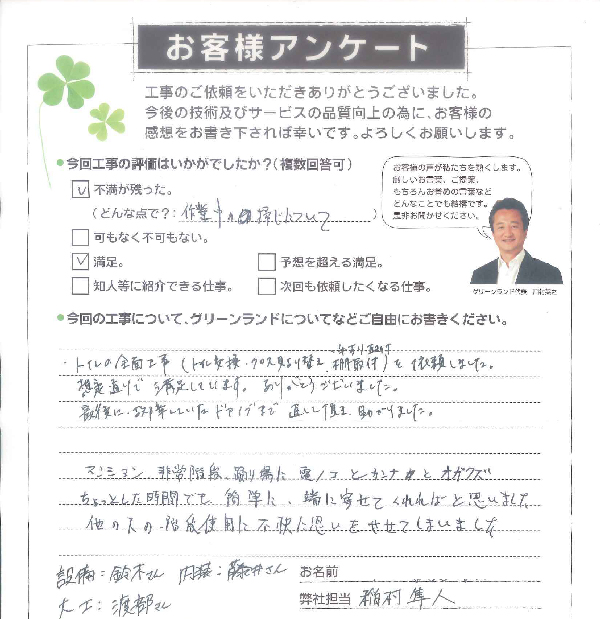 お客様アンケート
工事のご依頼をいただきありがとうございました。
今後の技術及びサービスの品質向上の為に、お客様の
感想をお書き下されば幸いです。よろしくお願いします。
●今回工事の評価はいかがでしたか？（複数回答可）
お客様の声が私たちを熱くします。
厳しいお言葉、ご提案、
もちろんお誉めの言葉など
どんなことでも結構です。
是非お聞かせください。
不満が残った。
（どんな点で？: 作業中の掃じについて）
可もなく不可もない。
満足。
予想を超える満足。
知人等に紹介できる仕事。
次回も依頼したくなる仕事。
グリーンランド代表
●今回の工事について、グリーンランドについてなどご自由にお書きください。
・トイレの全面工事（トイレ交換・クロス貼り替え 棚取付）を依頼しました。
想定通りで満足しています。ありがとうございました。
最後に、故障していたドアノブまで直して頂き助かりました。
マンション 非常階段、踊り場に電ノコとカンナとオガクズ
ちょっとした時間でも簡単に、端に寄せてくれればと思いました
他の人の階段使用に不快に思いをさせてしまいました
設備：鈴木さん 内装：藤井さん
お名前
大工：渡部さん
弊社担当 稲村隼人